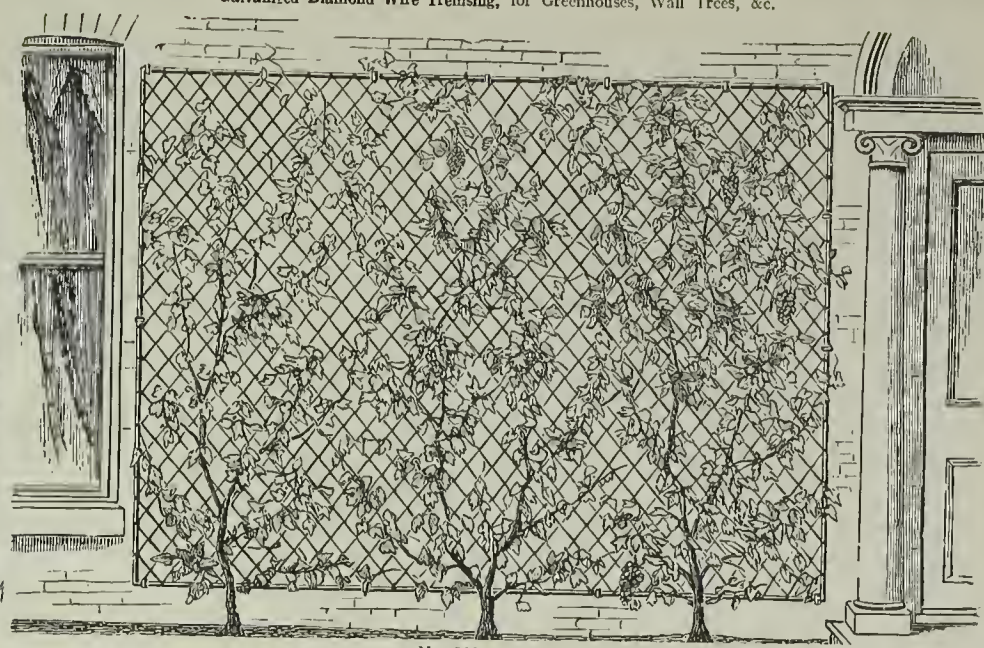 Galvanized Diamond Wire Trellising, for Greenhouses, Wall Trees, &c.